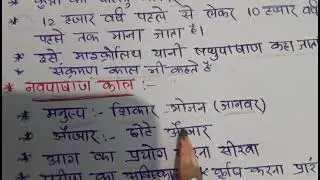 * 12 हजार वर्ष पहले से लेकर 10 हजार वर्ष
पहले तक माना जाता है।
* इसे माइक्रोलिथ यानी लघुपाषाण कहा जाता
संक्रमण काल भी कहते हैं
* नवपाषाण काल :-
* मनुष्य :- शिकार भोजन (जानवर)
* औजार :- छोटे औजार
* आग का प्रयोग करना सीखा